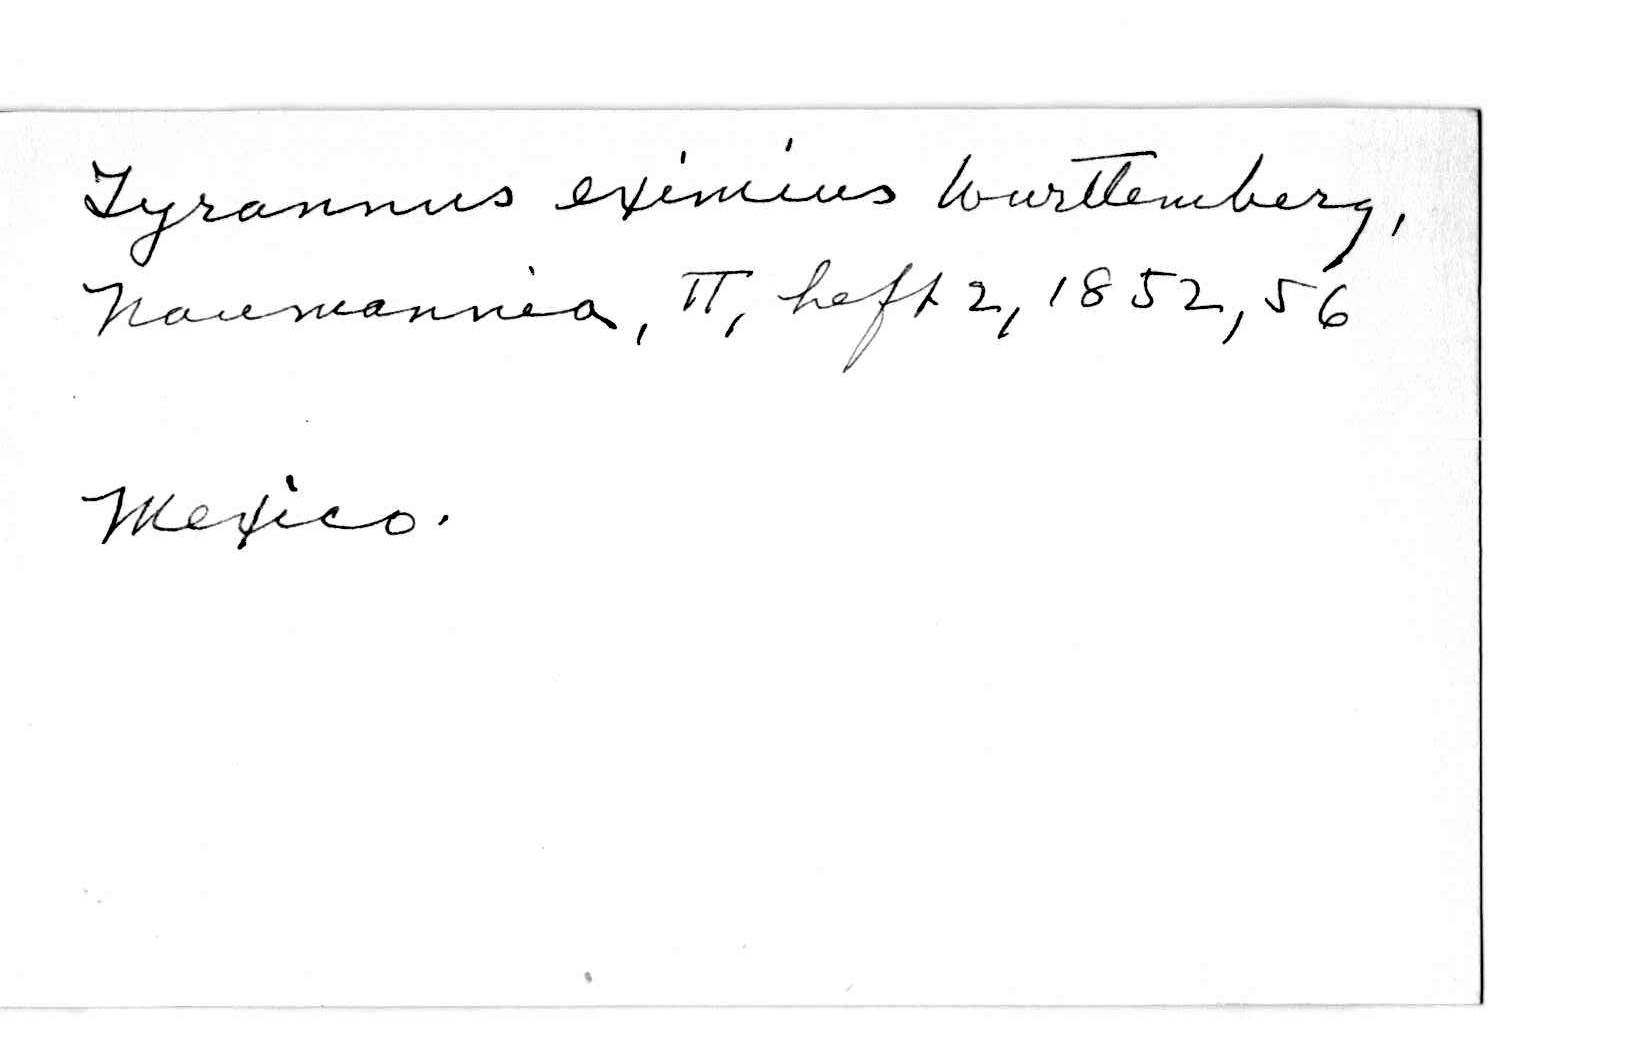 Tyrannus eximius Wurttemberg,
Naumannia, II, heft 2, 1852, 56
Mexico.